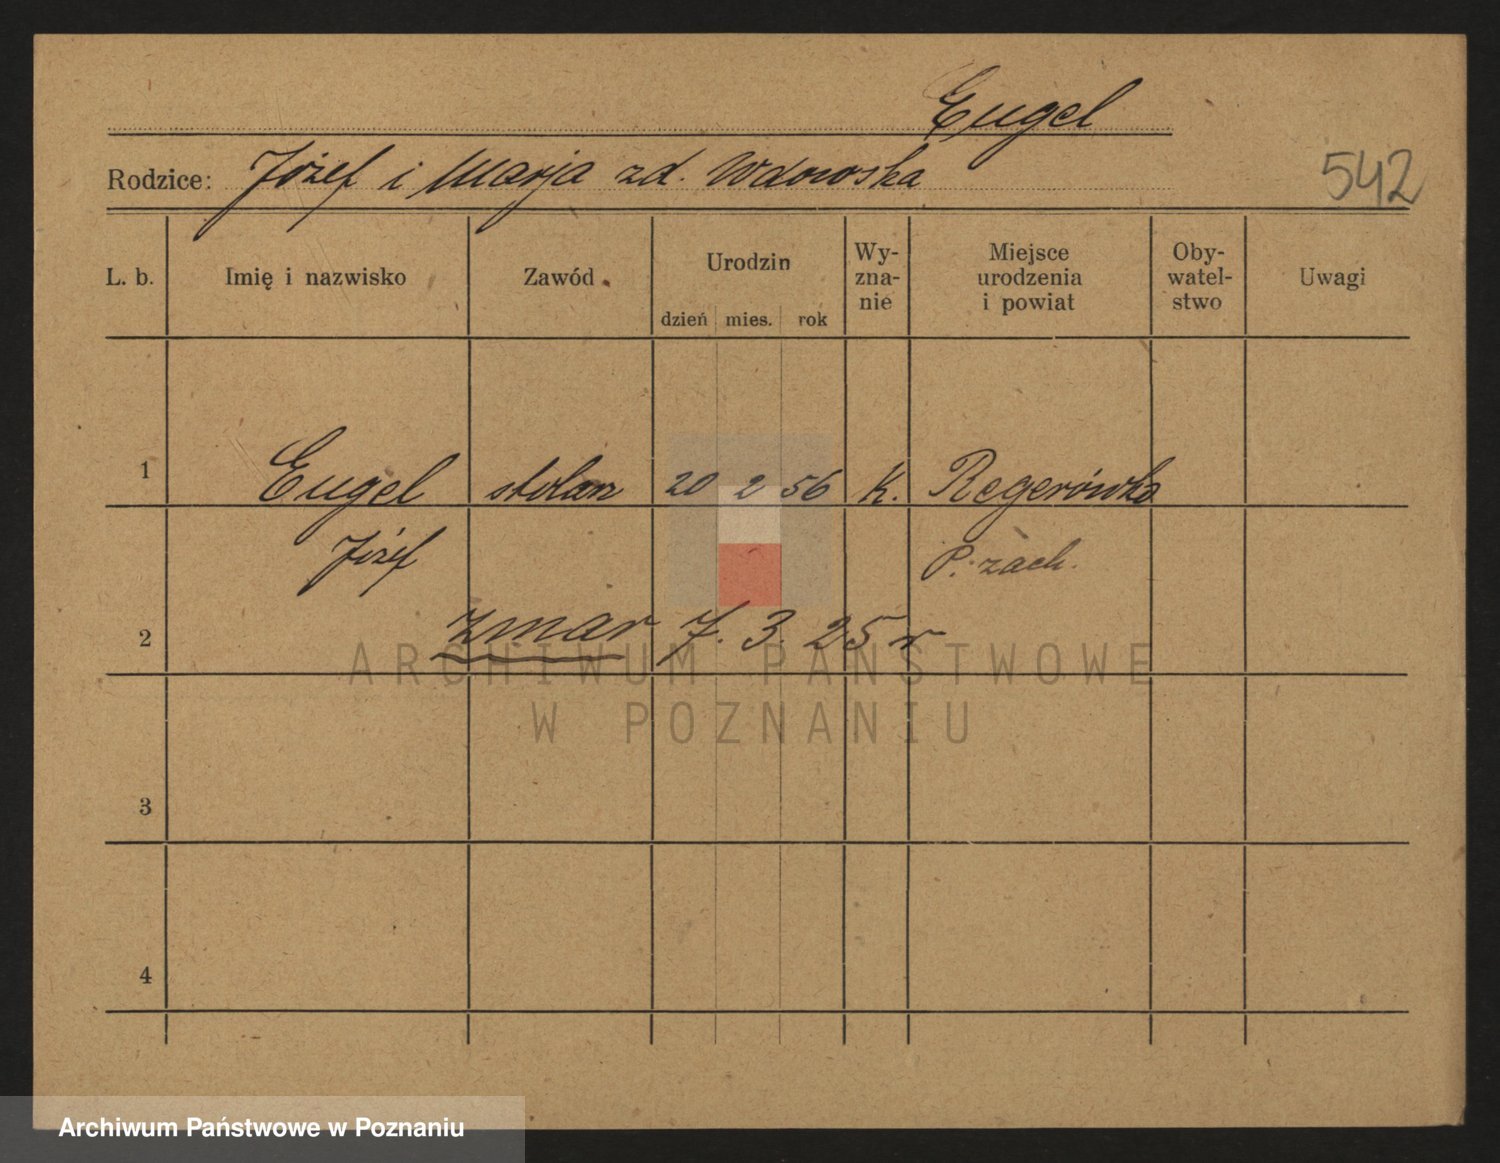 Engel
Rodzice: Józef i Marja zd. Wdowska
542
L. b. Imię i nazwisko Zawód Urodzin dzień mies. rok Wy-zna-nie Miejsce urodzenia i powiat Oby-watel-stwo Uwagi
1 Engel stolarz 20 2 56 k. Regerówka
Józef P. zach.
2 zmar 7. 3. 25 r
ARCHIWUM PAŃSTWOWE
W POZNANIU
3
4
Archiwum Państwowe w Poznaniu